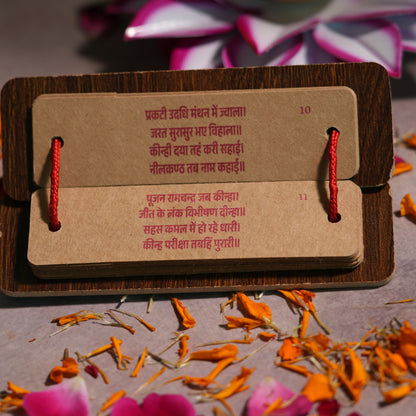 प्रकटी उदधि मंथन में ज्वाला।
जरत सुरासुर भए विहाला॥
कीन्ही दया तहं करी सहाई।
नीलकण्ठ तब नाम कहाई॥
10
पूजन रामचन्द्र जब कीन्हा।
जीत के लंक विभीषण दीन्हा॥
सहस कमल में हो रहे धारी।
कीन्ह परीक्षा तबहिं पुरारी॥
11